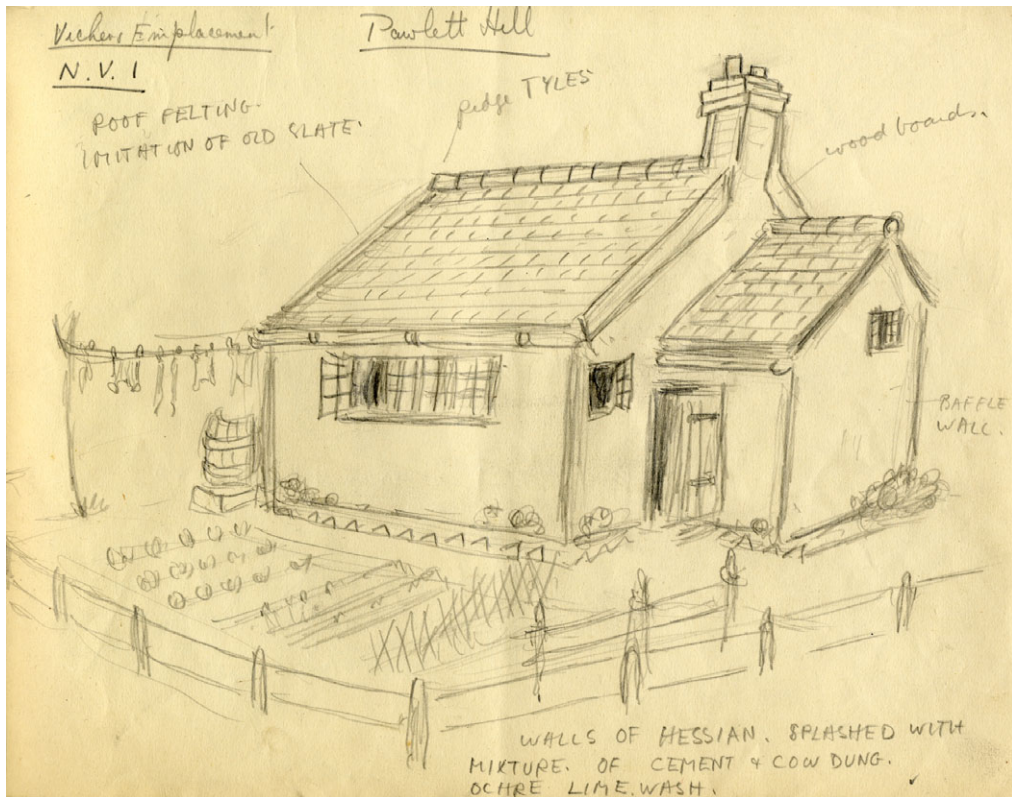 Vickers Emplacement
Pawlett Hill
N.V. 1
ROOF FELTING.
IMITATION OF OLD SLATE.
ridge TYLES
wood boards.
BAFFLE
WALL.
WALLS OF HESSIAN. SPLASHED WITH
MIXTURE. OF CEMENT & COW DUNG.
OCHRE LIME.WASH.